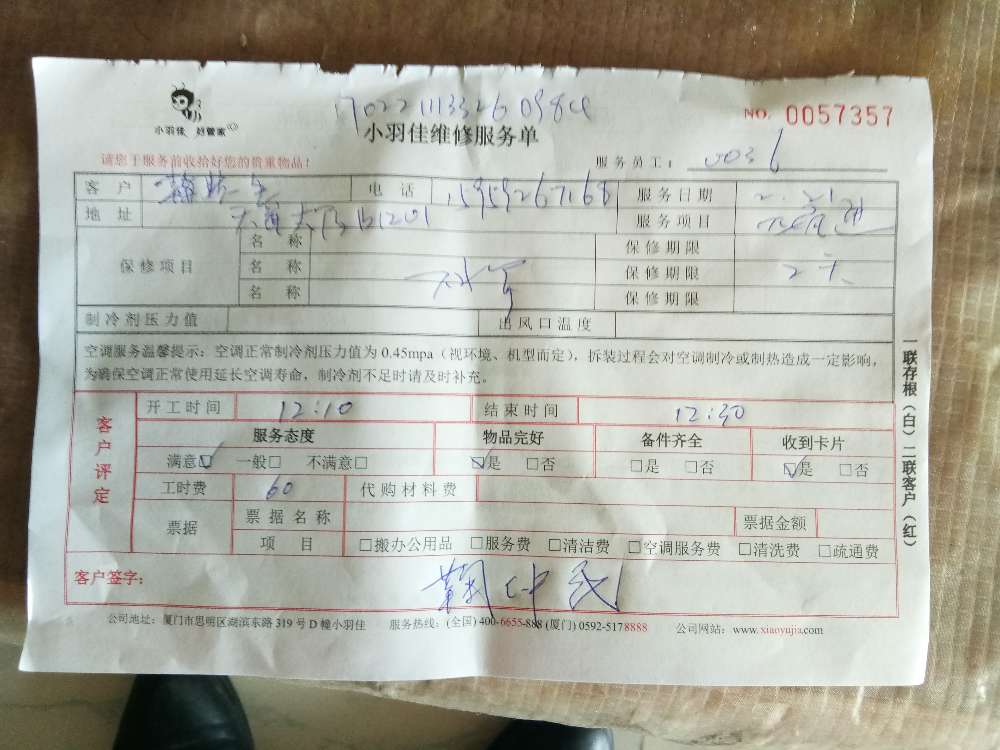 小羽佳 好管家
170221113326098
小羽佳维修服务单
NO. 0057357
请您于服务前收拾好您的贵重物品！
服务员工： 0036
客户 电话 15959267168 服务日期 2.21
地址 大厦B1201 服务项目
保修项目 名称 保修期限
名称 保修期限
名称 保修期限
制冷剂压力值 出风口温度
空调服务温馨提示：空调正常制冷剂压力值为 0.45mpa（视环境、机型而定），拆装过程会对空调制冷或制热造成一定影响，
为确保空调正常使用延长空调寿命，制冷剂不足时请及时补充。
客户评定
开工时间 12:10 结束时间 12:30
服务态度 物品完好 备件齐全 收到卡片
满意☑ 一般□ 不满意□ ☑是 □否 □是 □否 ☑是 □否
工时费 60 代购材料费
票据 票据名称 票据金额
项目 □搬办公用品 □服务费 □清洁费 □空调服务费 □清洗费 □疏通费
客户签字：
公司地址：厦门市思明区湖滨东路 319 号 D 幢小羽佳 服务热线：(全国) 400-6655-888 (厦门) 0592-5178888 公司网站：www.xiaoyujia.com
一联存根（白）二联客户（红）